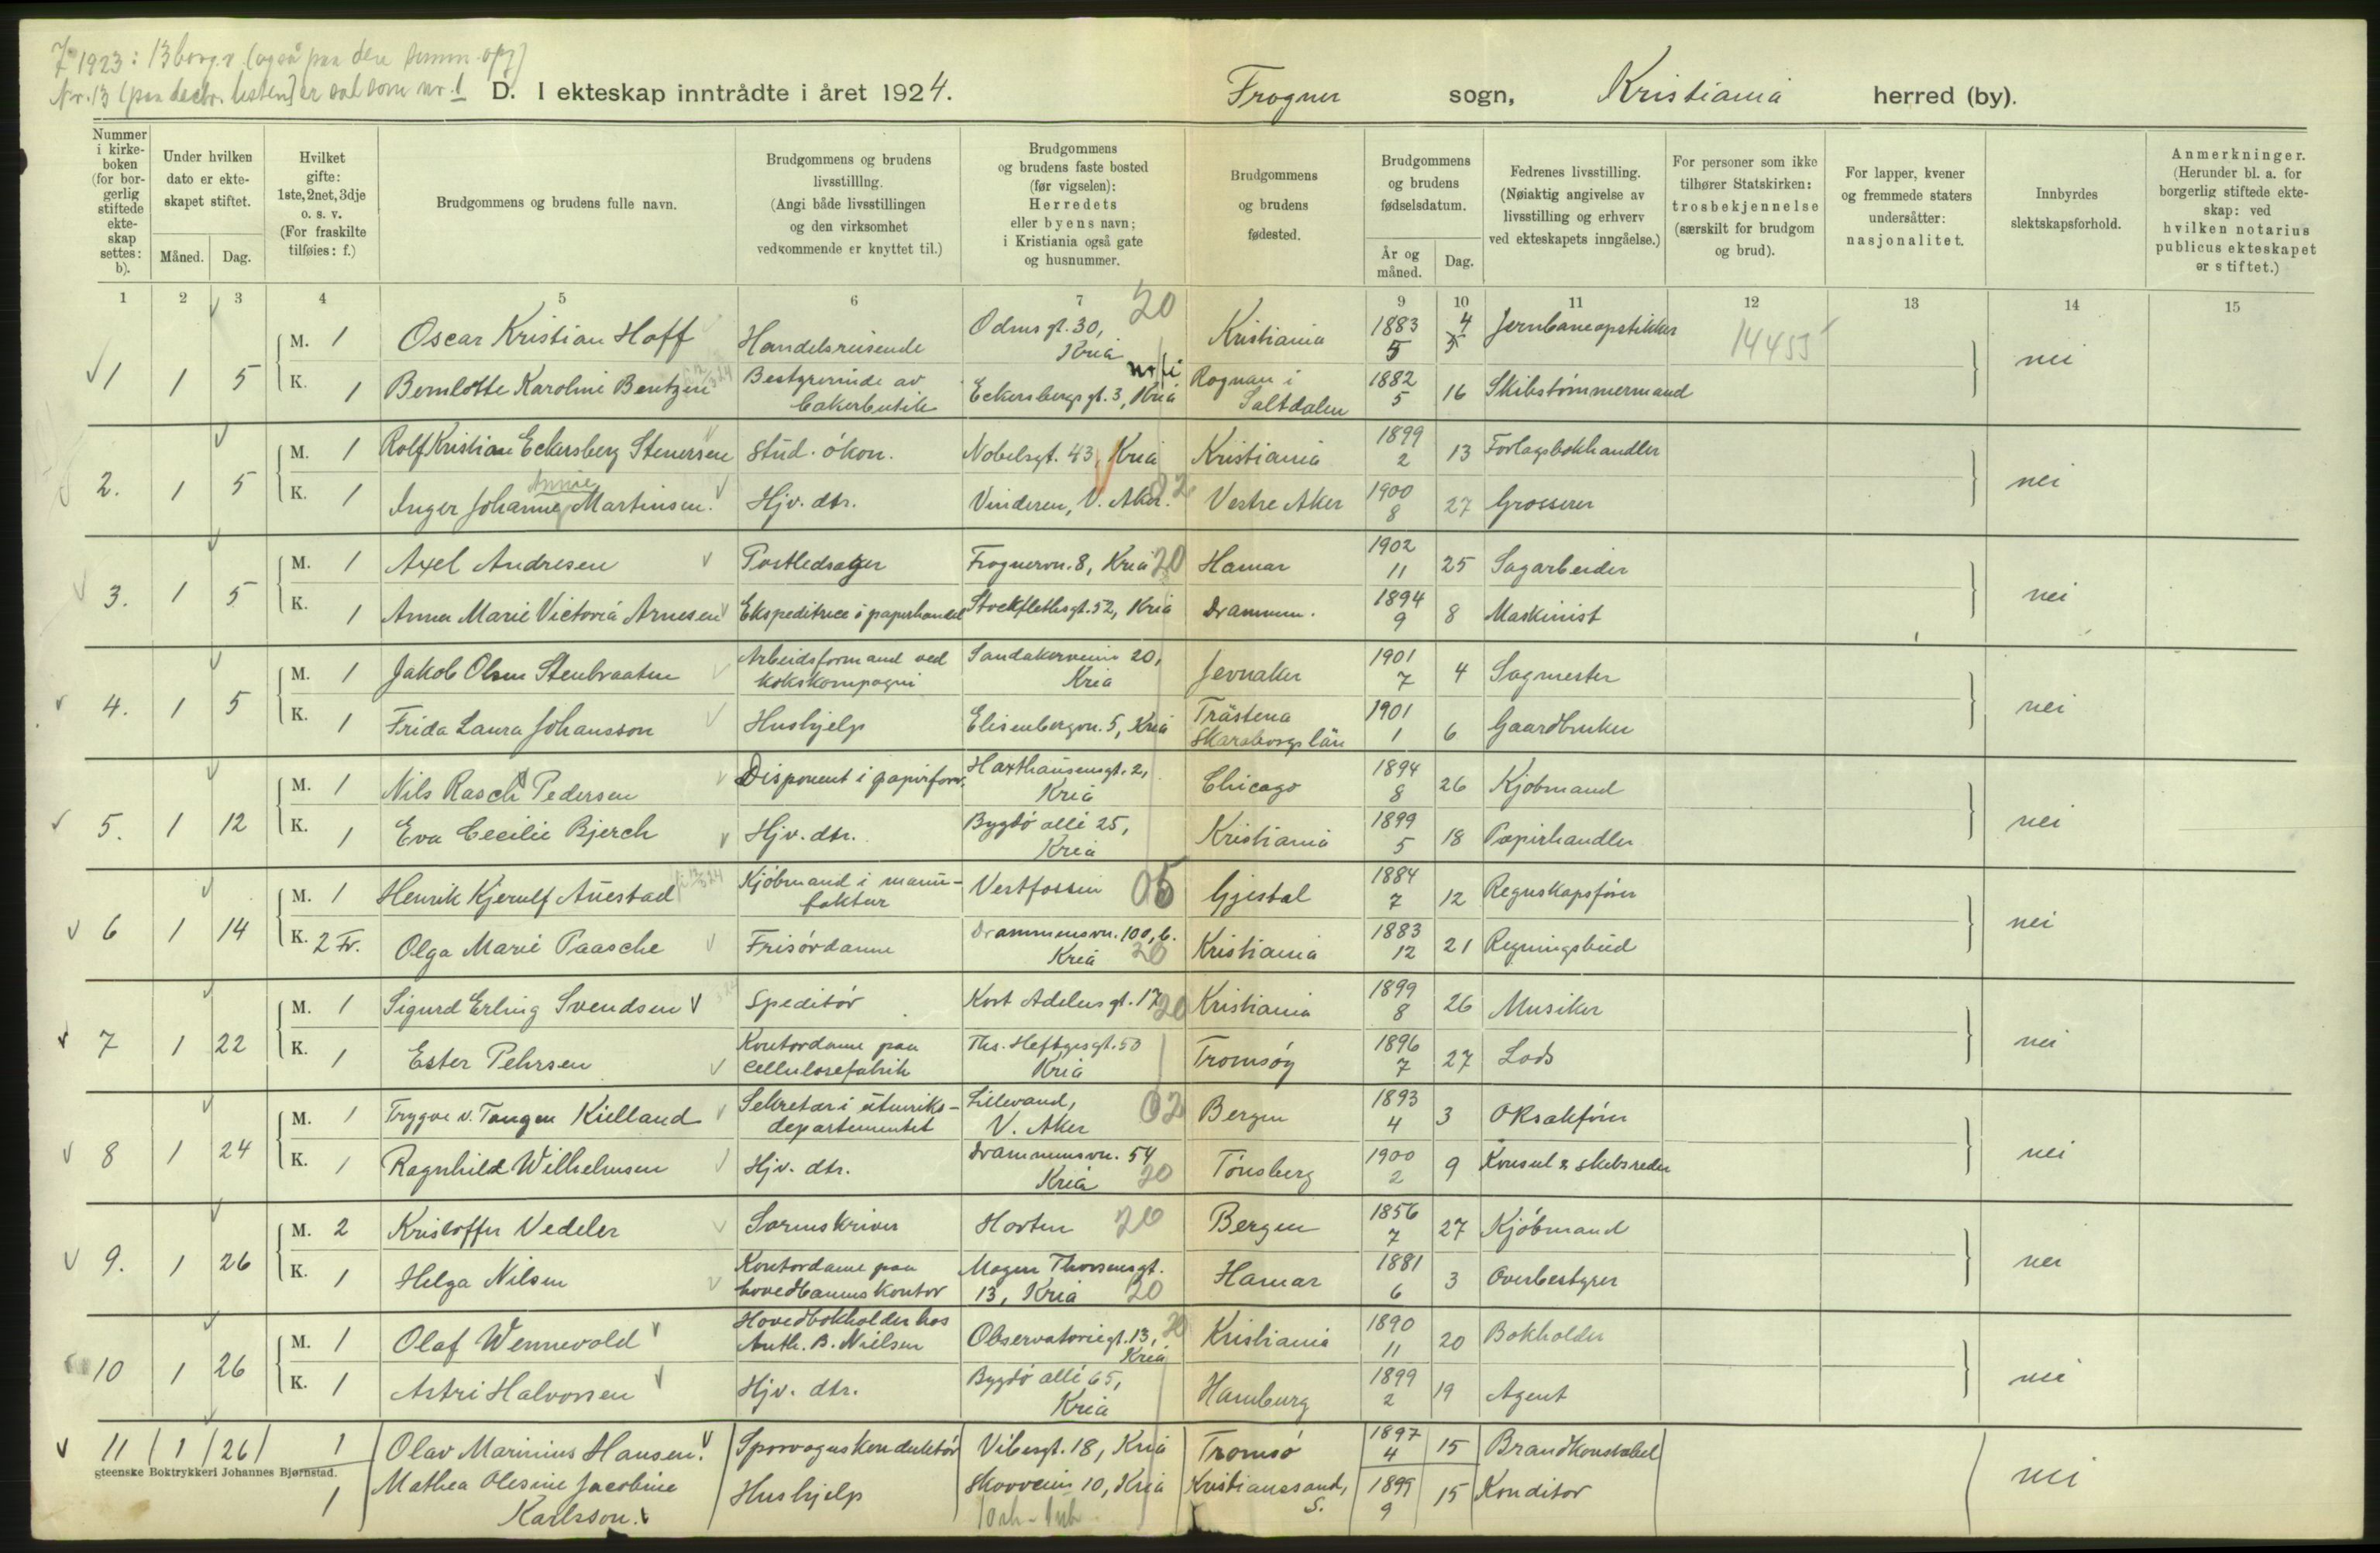 7 1923: 13 borg.v. (også paa den
Nr. 13 (paa decbr. listen) er som nr. 1
D. I ekteskap inntrådte i året 1924.
Frogner sogn, Kristiania herred (by).
Nummer i kirke-boken (for bor-gerlig stiftede ekte-skap settes: b).
Under hvilken dato er ekte-skapet stiftet.
Måned. Dag.
Hvilket gifte: 1ste, 2net, 3dje o. s. v. (For fraskilte tilføies: f.)
Brudgommens og brudens fulle navn.
Brudgommens og brudens livsstilllng. (Angi både livsstillingen og den virksomhet vedkommende er knyttet til.)
Brudgommens og brudens faste bosted (før vigselen): Herredets eller byens navn; i Kristiania også gate og husnummer.
Brudgommens og brudens fødested.
Brudgommens og brudens fødselsdatum.
År og måned. Dag.
Fedrenes livsstilling. (Nøiaktig angivelse av livsstilling og erhverv ved ekteskapets inngåelse.)
For personer som ikke tilhører Statskirken: trosbekjennelse (særskilt for brudgom og brud).
For lapper, kvener og fremmede staters undersåtter: nasjonalitet.
Innbyrdes slektskapsforhold.
Anmerkninger. (Herunder bl. a. for borgerlig stiftede ekte-skap: ved hvilken notarius publicus ekteskapet er stiftet.)
1 2 3 4 5 6 7 8 9 10 11 12 13 14 15
1 1 5 M. 1 Oscar Kristian Hoff Handelsreisende Odinsgt. 30, Kria 20 Kristiania 1883 5 4 Jernbaneopstikker 14453 nei
K. 1 Bernlotte Karoline Bentzen Bestyrerinde av bakerbutik Eckersbergsgt. 3, Kria Rognan i Saltdalen 1882 5 16 Skibstømmermand
2. 1 5 M. 1 Rolf Kristian Eckersberg Stenersen Stud. økon. Nobelsgt. 43, Kria Kristiania 1899 2 13 Forlagsbokhandler nei
K. 1 Inger Johanne Annie Martinsen. Hjv. dtr. Vinderen, V. Aker. 02 Vestre Aker 1900 8 27 Grosserer
3. 1 5 M. 1 Axel Andresen Postledsager Frognervn. 8, Kria 20 Hamar 1902 11 25 Sagarbeider nei
K. 1 Anna Marie Victoria Arnesen Ekspeditrice i papirhandel Stockflethsgt. 52, Kria Drammen. 1894 9 8 Maskinist
4. 1 5 M. 1 Jakob Olsen Stenbraaten Arbeidsformand ved kokskompagni Sandakerveien 20, Kria Jevnaker 1901 7 4 Sagmester nei
K. 1 Frida Laura Johansson Hushjelp Elisenbergvn. 5, Kria Trästena Skaraborgs län 1901 1 6 Gaardbruker
5. 1 12 M. 1 Nils Rasch Pedersen Disponent i papirforr. Haxthausensgt. 2, Kria Chicago 1894 8 26 Kjøbmand nei
K. 1 Eva Cecilie Bjerch Hjv. dtr. Bygdø allé 25, Kria Kristiania 1899 5 18 Papirhandler
6 1 14 M. 1 Henrik Kjerulf Auestad Kjøbmand i manu-faktur Vestfossen 05 Gjestal 1884 7 12 Regnskapsfører nei
K. 2 Fr. Olga Marie Paasche Frisørdame Drammensvn. 100, b. Kria 20 Kristiania 1883 12 21 Regningsbud
7 1 22 M. 1 Sigurd Erling Svendsen Speditør Kort Adelersgt. 17 20 Kristiania 1899 8 26 Musiker nei
K. 1 Ester Pehrsen Kontordame paa cellulosefabrik Ths. Heftyesgt. 50 Kria Tromsø 1896 7 27 Lods
8 1 24 M. 1 Trygve v. Tangen Kielland Sekretær i utenriks-departementet Lillevand, V. Aker 02 Bergen 1893 4 3 O.R.sakfører nei
K. 1 Ragnhild Wilhelmsen Hjv. dtr. Drammensvn. 54 Kria 20 Tønsberg 1900 2 9 Konsul & skibsreder
9. 1 26 M. 2 Kristoffer Vedeler Sorenskriver Horten 20 Bergen 1856 7 27 Kjøbmand nei
K. 1 Helga Nilsen Kontordame paa hovedbanens kontor Magen Thorsensgt. 13, Kria 20 Hamar 1881 6 3 Overbestyrer
10 1 26 M. 1 Olaf Wennevold Hovedbokholder hos Anth. B. Nielsen Observatoriegt. 13, Kria 20 Kristiania 1890 11 20 Bokholder nei
K. 1 Astri Halvorsen Hjv. dtr. Bygdø allé 65, Kria Hamburg 1899 2 19 Agent
11 1 26 1 Olav Marinius Hansen. Sporvognskonduktør Vibesgt. 18, Kria Tromsø 1897 4 15 Brandkonstabel nei
Steenske Boktrykkeri Johannes Bjørnstad.
1 Mathea Olesine Jacobine Karlsson. Hushjelp Skovveien 10, Kria Kristianssand, S. 1899 9 15 Konditor